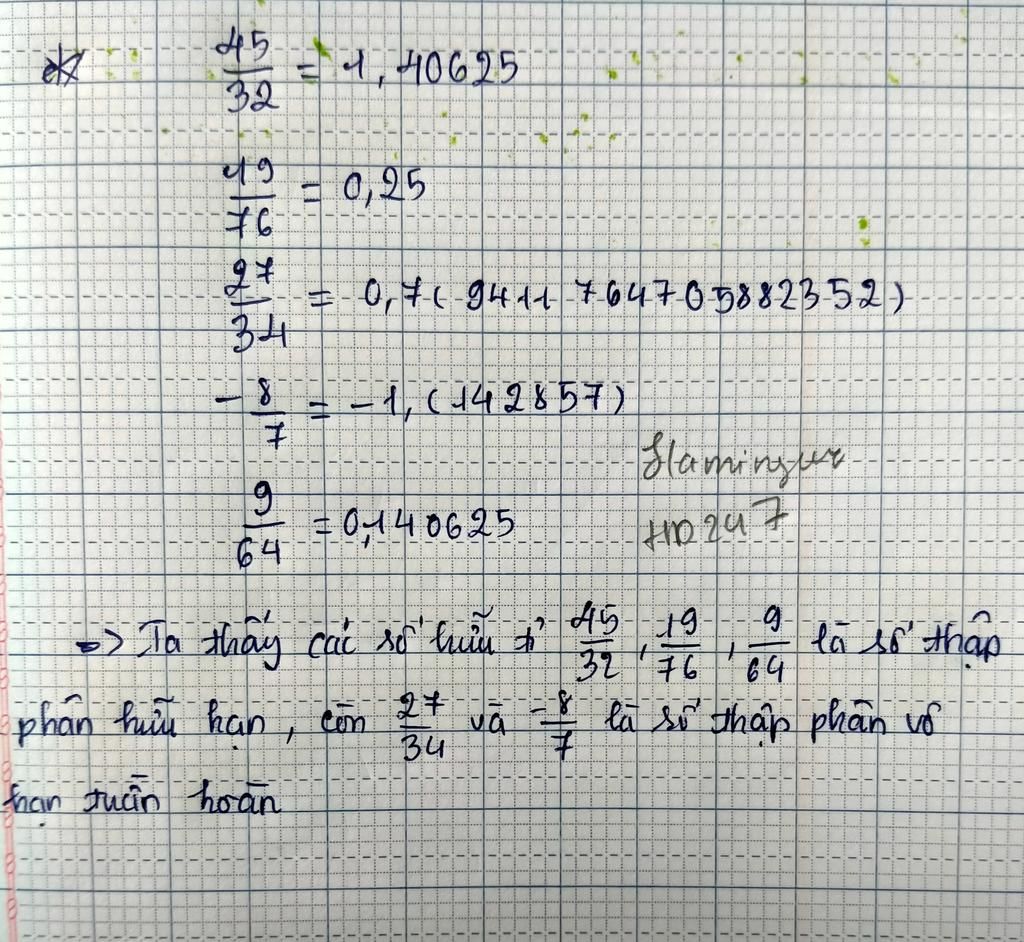 45/32 = 1,40625
19/76 = 0,25
27/34 = 0,7(9411764705882352)
-8/7 = -1,(142857)
9/64 = 0,140625
HD247
=> Ta thấy các số hữu tỉ 45/32, 19/76, 9/64 là số thập
phân hữu hạn, còn 27/34 và -8/7 là số thập phân vô
hạn tuần hoàn